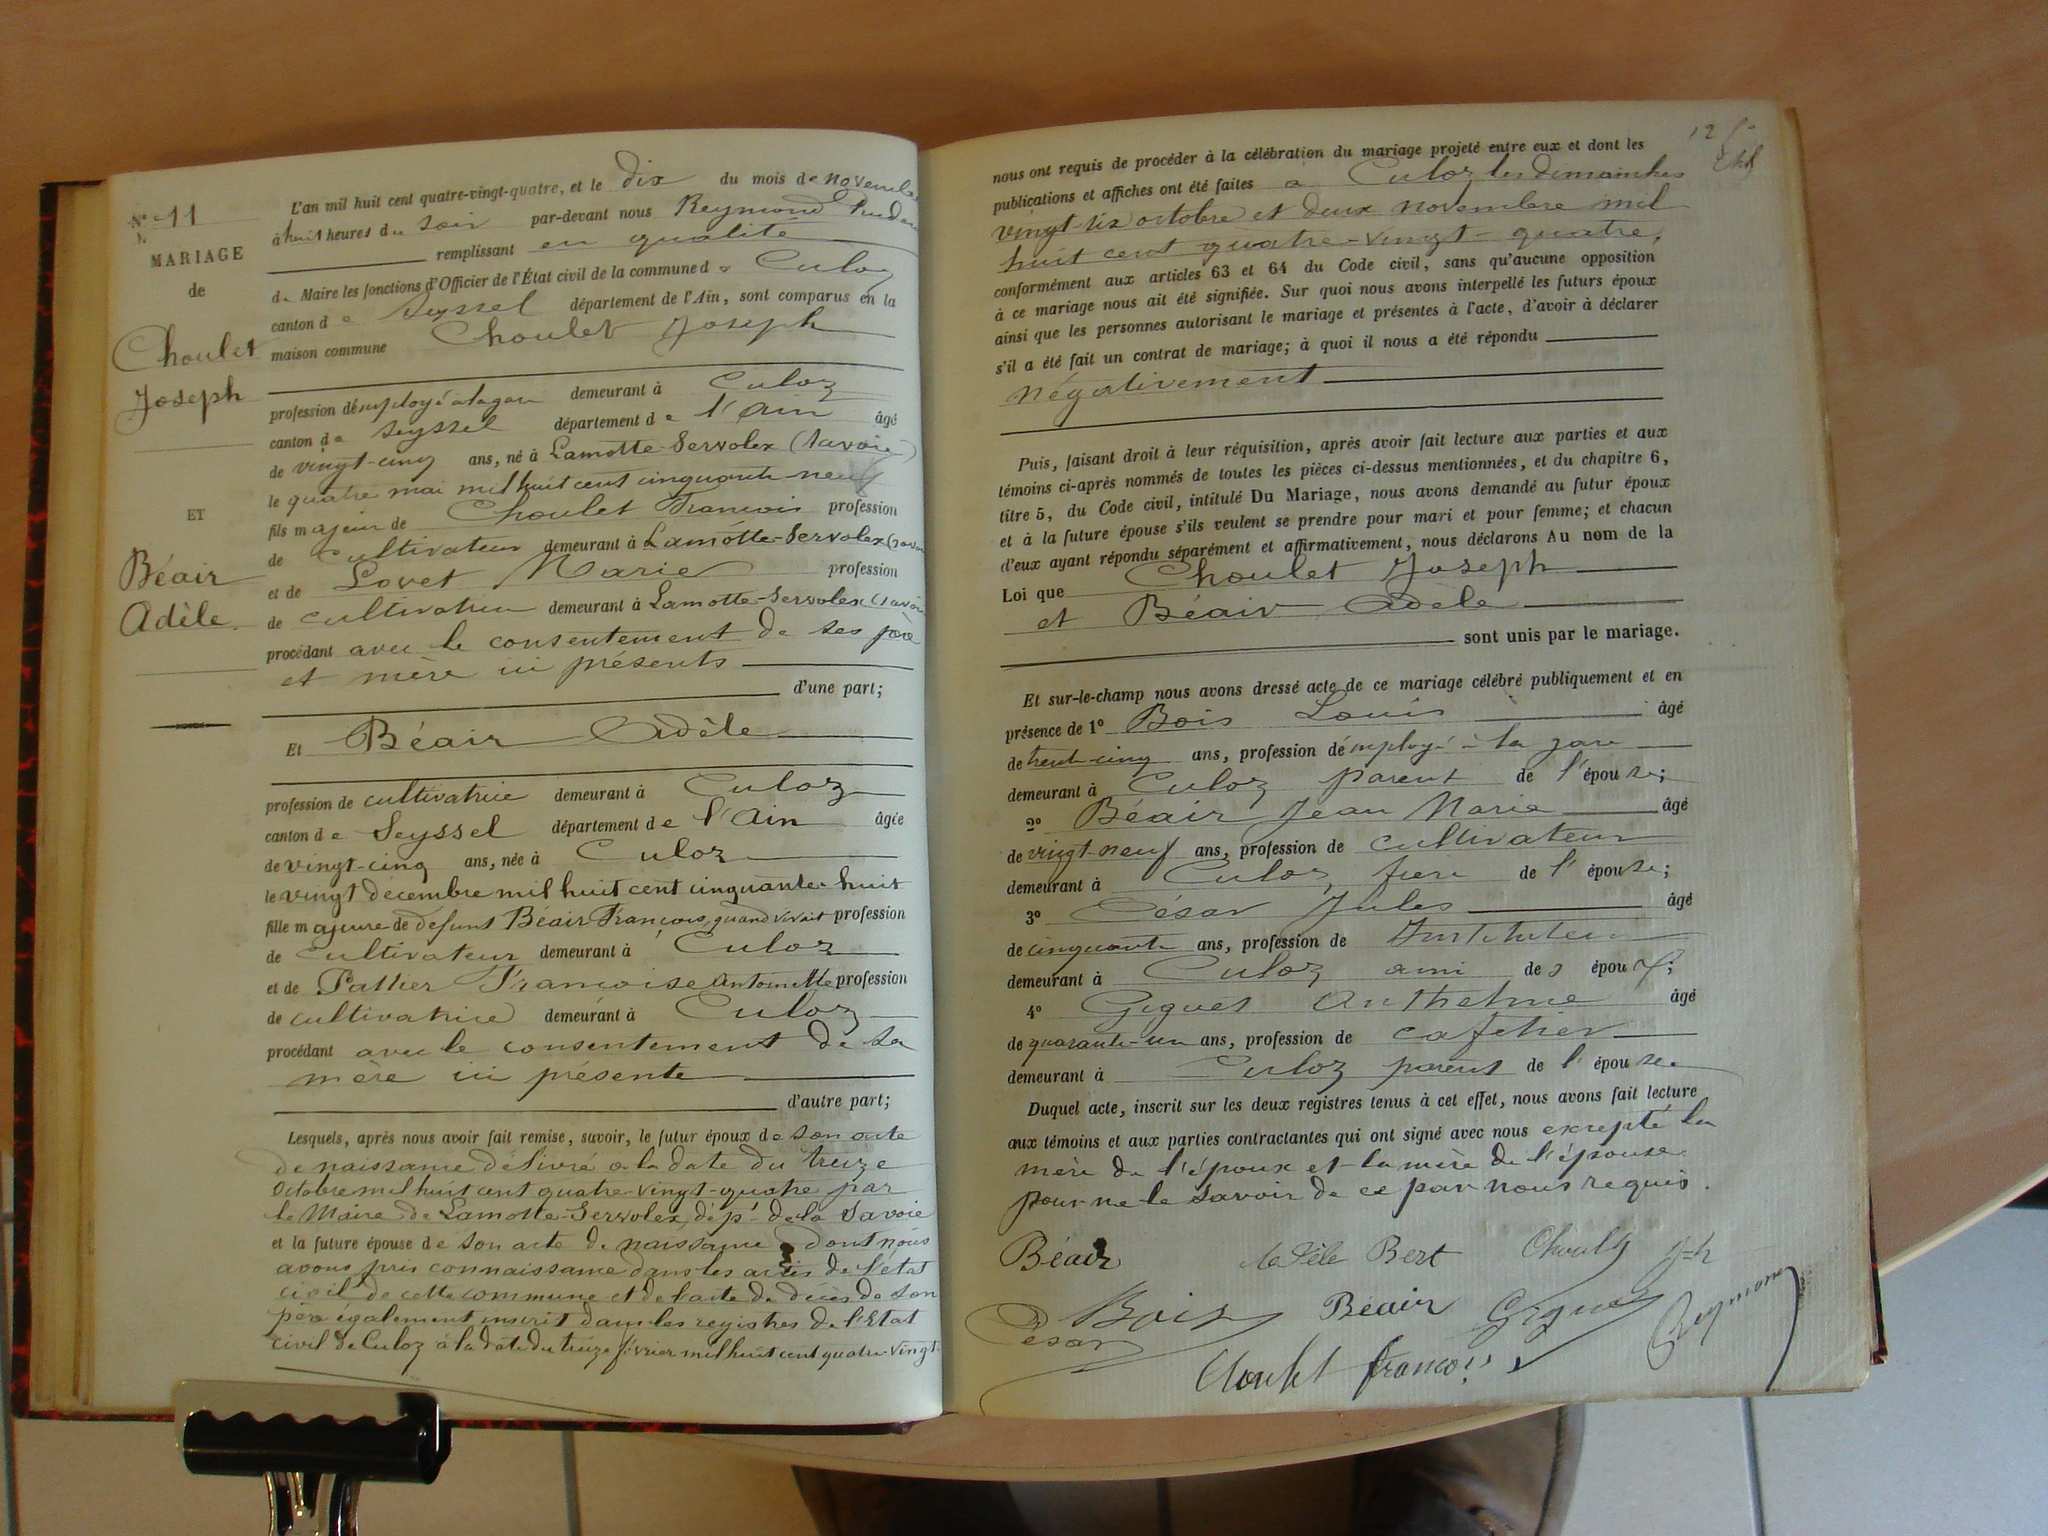 N° 11
MARIAGE
de
Choulet
Joseph
ET
Béair
Adèle
L'an mil huit cent quatre-vingt-quatre, et le dix du mois de novembre
à huit heures du soir par-devant nous Reymond
remplissant en qualité
de Maire les fonctions d'Officier de l'État civil de la commune de Culoz
canton de Seyssel département de l'Ain, sont comparus en la
maison commune Choulet Joseph
profession d'employé à la gare demeurant à Culoz
canton de Seyssel département de l'Ain âgé
de vingt-cinq ans, né à Lamotte-Servolex (Savoie)
le quatre mai mil huit cent cinquante neuf
fils majeur de Choulet François profession
de Cultivateur demeurant à Lamotte-Servolex (Savoie
et de Lovet Marie profession
de cultivatrice demeurant à Lamotte-Servolex (Savoie
procédant avec le consentement de ses père
et mère ici présents
d'une part;
Et Béair Adèle
profession de cultivatrice demeurant à Culoz
canton de Seyssel département de l'Ain âgée
de vingt-cinq ans, née à Culoz
le vingt decembre mil huit cent cinquante-huit
fille majeure de defunt Béair François, quand vivait profession
de Cultivateur demeurant à Culoz
et de Pallier Françoise Antoinette profession
de cultivatrice demeurant à Culoz
procédant avec le consentement de sa
mère ici présente
d'autre part;
Lesquels, après nous avoir fait remise, savoir, le futur époux de son acte
de naissance délivré à la date du treize
Octobre mil huit cent quatre-vingt-quatre par
le Maire de Lamotte-Servolex, dép.t de la Savoie
et la future épouse de son acte de naissance dont nous
avons pris connaissance dans les actes de l'état
civil de cette commune et de l'acte de décès de son
père également inscrit dans les registres de l'Etat
civil de Culoz à la date du treize février mil huit cent quatre-vingt-
12
nous ont requis de procéder à la célébration du mariage projeté entre eux et dont les
publications et affiches ont été faites à Culoz les dimanches
vingt-six octobre et deux novembre mil
huit cent quatre-vingt-quatre,
conformément aux articles 63 et 64 du Code civil, sans qu'aucune opposition
à ce mariage nous ait été signifiée. Sur quoi nous avons interpellé les futurs époux
ainsi que les personnes autorisant le mariage et présentes à l'acte, d'avoir à déclarer
s'il a été fait un contrat de mariage; à quoi il nous a été répondu
négativement
Puis, faisant droit à leur réquisition, après avoir fait lecture aux parties et aux
témoins ci-après nommés de toutes les pièces ci-dessus mentionnées, et du chapitre 6,
titre 5, du Code civil, intitulé Du Mariage, nous avons demandé au futur époux
et à la future épouse s'ils veulent se prendre pour mari et pour femme; et chacun
d'eux ayant répondu séparément et affirmativement, nous déclarons Au nom de la
Loi que Choulet Joseph
et Béair Adèle
sont unis par le mariage.
Et sur-le-champ nous avons dressé acte de ce mariage célébré publiquement et en
présence de 1° Bois Louis âgé
de trente-cinq ans, profession d'employé à la gare
demeurant à Culoz parent de l'épouse;
2° Béair Jean Marie âgé
de vingt-neuf ans, profession de cultivateur
demeurant à Culoz, frère de l'épouse;
3° César Jules âgé
de cinquante ans, profession de Instituteur
demeurant à Culoz ami des époux;
4° Giguet Anthelme âgé
de quarante-un ans, profession de cafetier
demeurant à Culoz parent de l'épouse.
Duquel acte, inscrit sur les deux registres tenus à cet effet, nous avons fait lecture
aux témoins et aux parties contractantes qui ont signé avec nous excepté la
mère de l'époux et la mère de l'épouse
pour ne le savoir de ce par nous requis.
Béair Adèle Bert Choulet
Bois Béair Giguet Reymond
César
Choulet françois